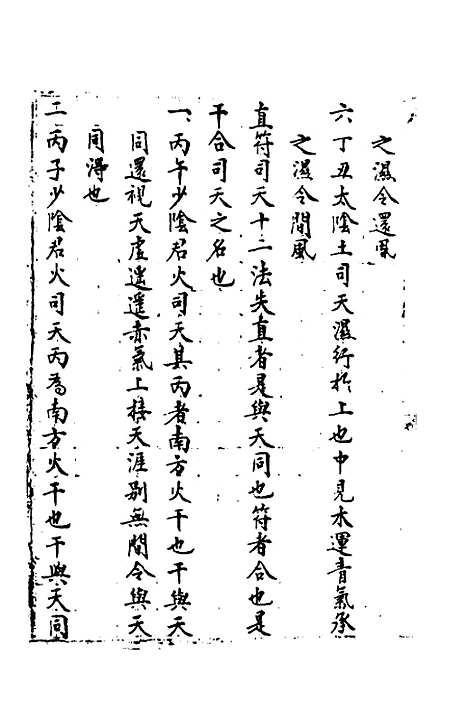 之濕令還風
六丁丑太陰土司天濕行於上也中見木運青氣承
之濕令間風
直符司天十二法失直者是與天同也符者合也是
干合司天之名也
一丙午少陰君火司天其丙者南方火干也干與天
同還視天虛遙遙赤氣上接天涯別無間令與天
同得也
二丙子少陰君火司天丙為南方火干也干與天同